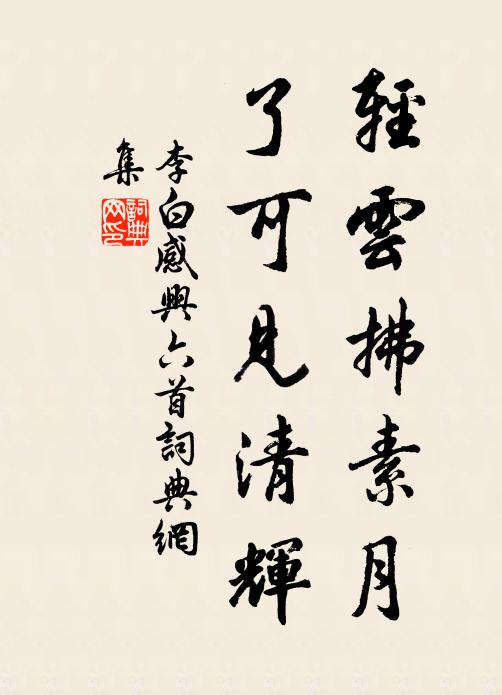 輕雲拂素月
了可見清輝
李白感興六首詞典網
集
詞典網印